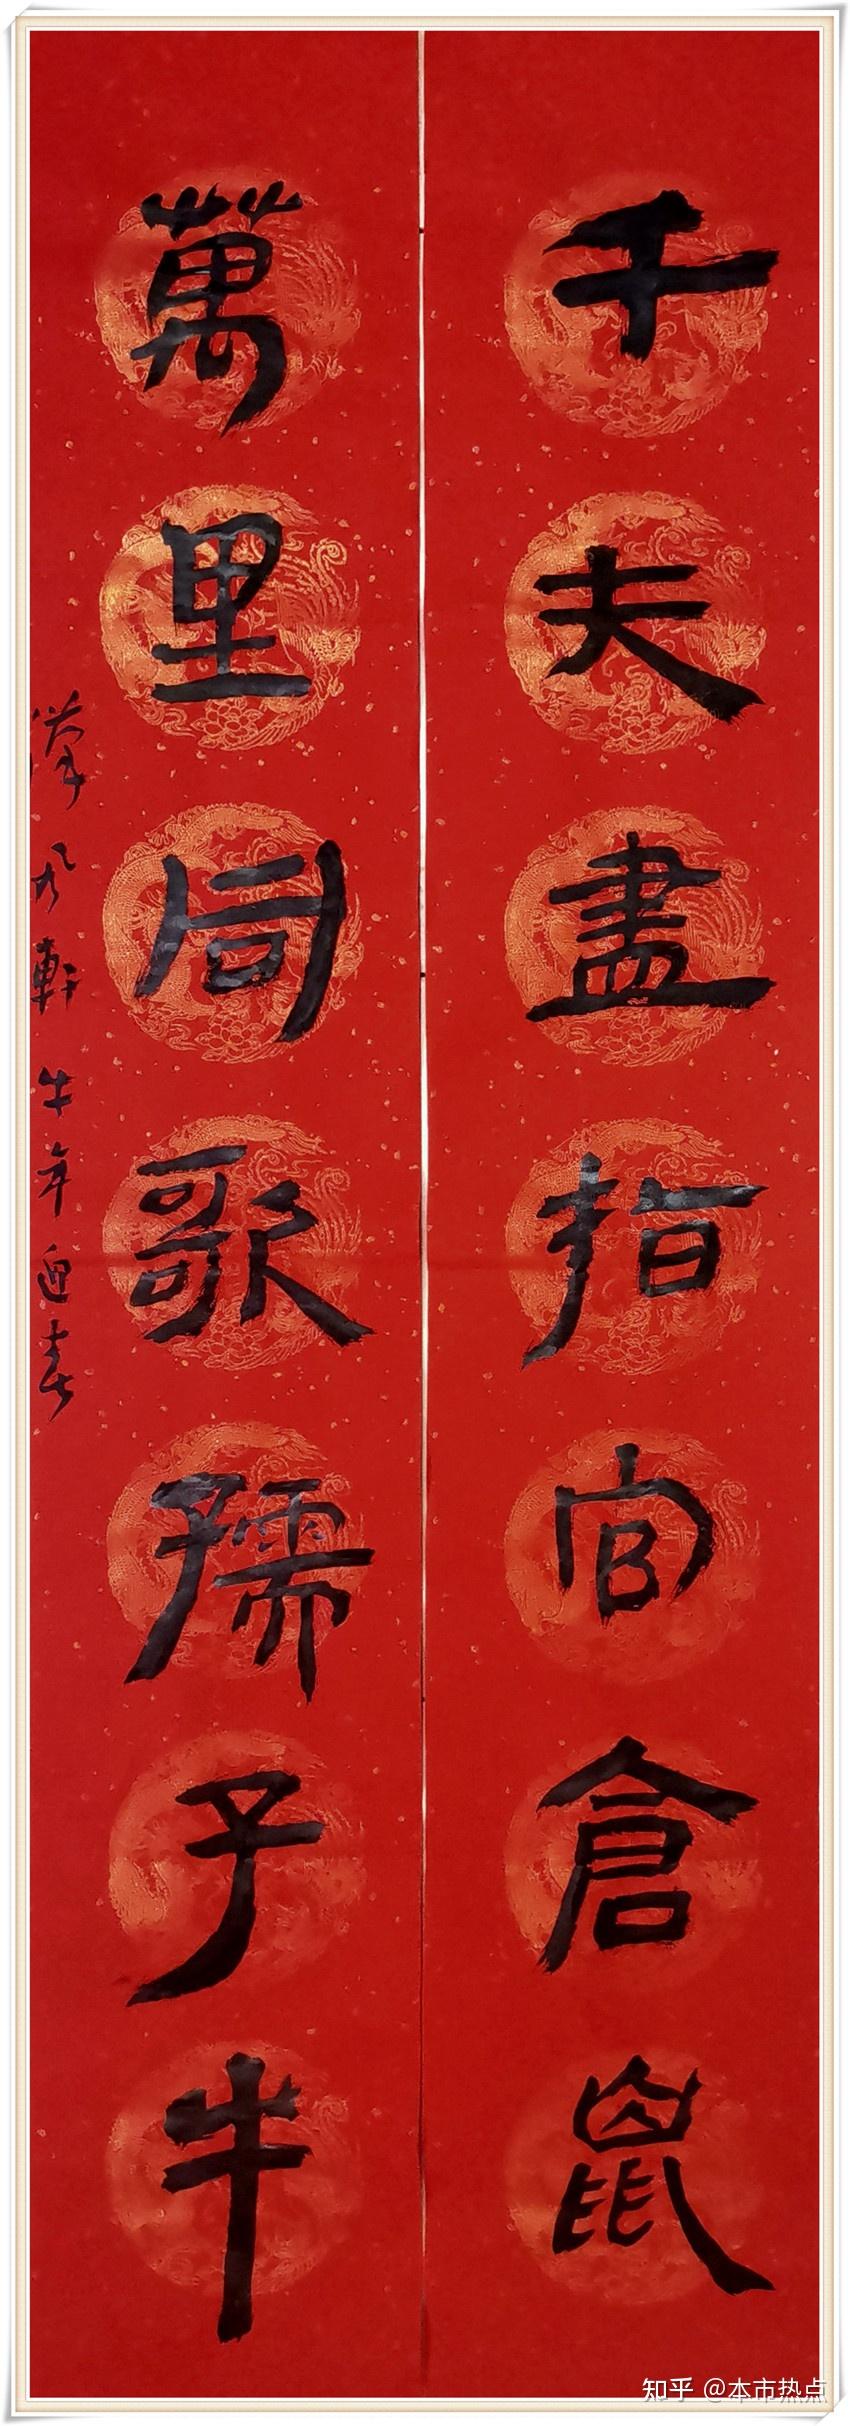 千夫盡指官倉鼠
萬里同歌孺子牛
漢風軒牛年迎春
知乎 @本市热点